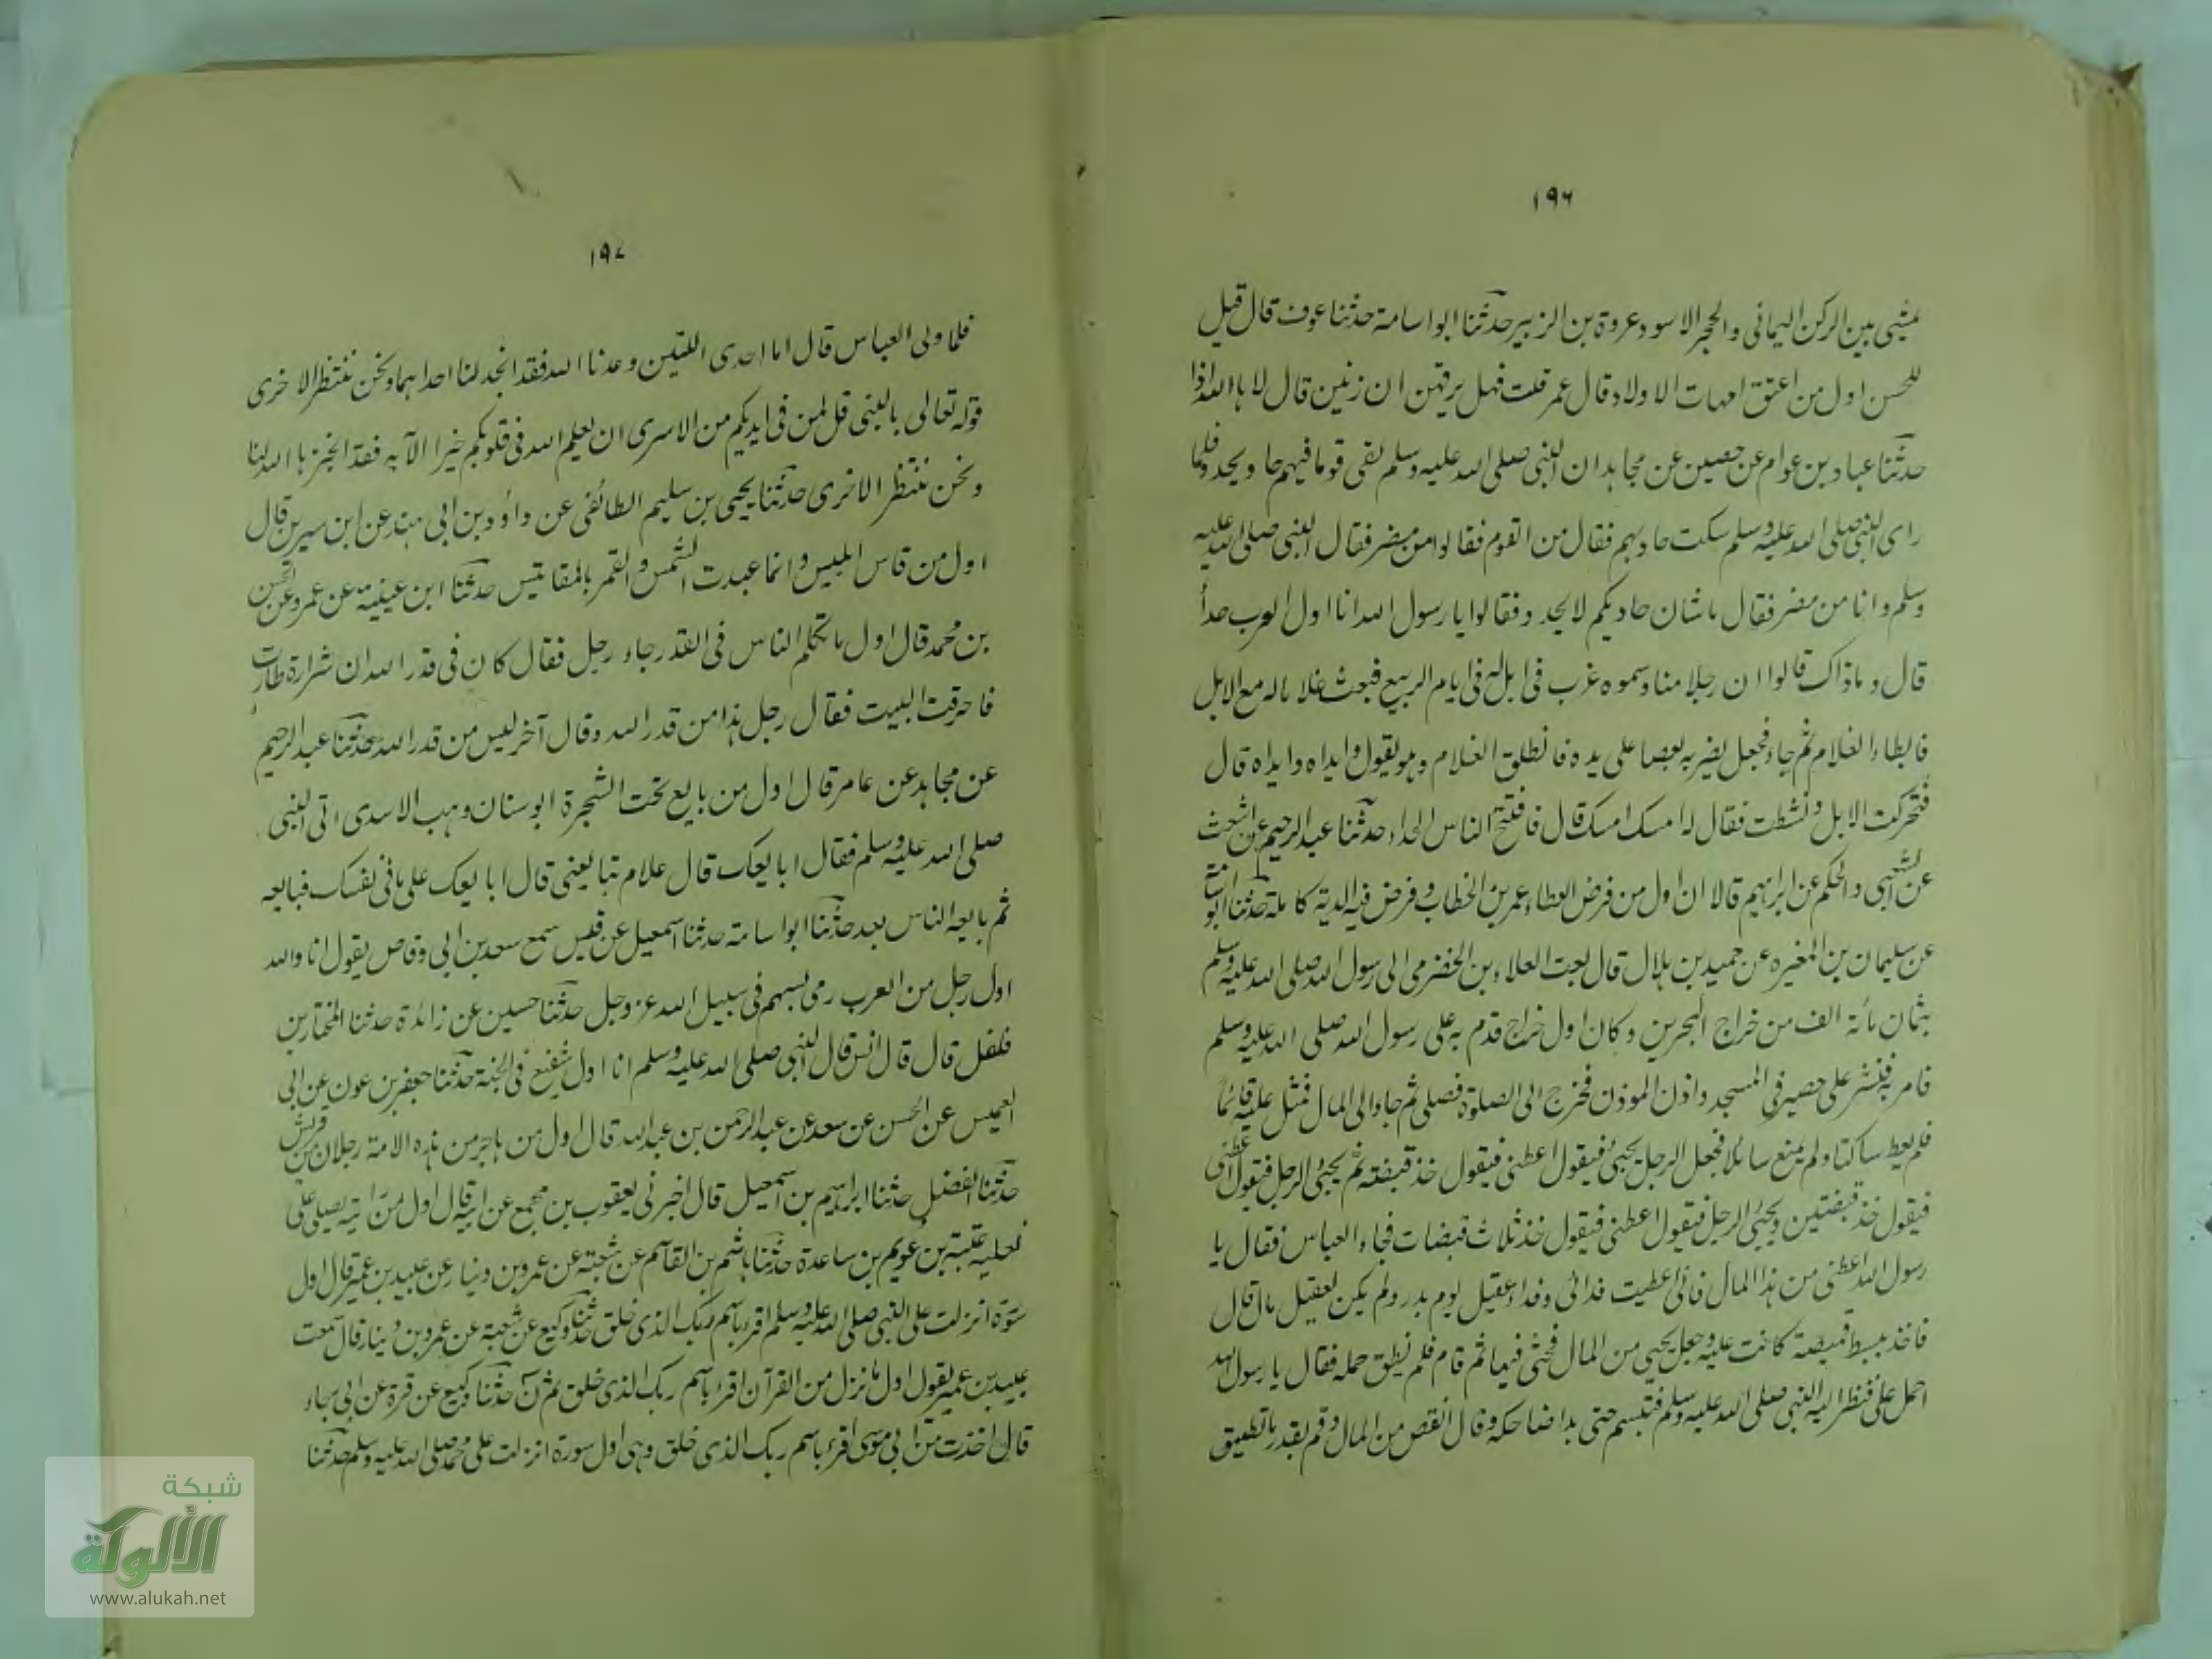 ١٩٦
يمشي بين الركن اليماني والحجر الاسود عروة بن الزبير حدثنا ابو اسامة حدثنا عوف قال قيل
للحسن اول من اعتق امهات الاولاد قال عمر قلت فهل يرقهن ان زنين قال لا ها الله اذا
حدثنا عباد بن عوام عن حصين عن مجاهد ان النبي صلى الله عليه وسلم لقي قوما فيهم حاد يحدو فلما
راى النبي صلى الله عليه وسلم سكت حاديهم فقال من القوم فقالوا من مضر فقال النبي صلى الله عليه
وسلم وانا من مضر فقال ما شان حاديكم لا يحدو فقالوا يا رسول الله انا اول العرب حدأ
قال وما ذاك قالوا ان رجلا منا وسموه غرب في ابل له في ايام الربيع فبعث غلاما له مع الابل
فابطاء الغلام ثم جاء فجعل يضربه بعصا على يده فانطلق الغلام وهو يقول وايداه وايداه قال
فتحركت الابل ونشطت فقال له امسك امسك قال فافتتح الناس الحداء حدثنا عبد الرحيم عن اشعث
عن الشعبي والحكم عن ابراهيم قالا ان اول من فرض العطاء عمر بن الخطاب وفرض فيه الدية كاملة حدثنا ابو اسامة
عن سليمان بن المغيره عن حميد بن هلال قال بعث العلاء بن الحضرمي الى رسول الله صلى الله عليه وسلم
بثمان مائة الف من خراج البحرين وكان اول خراج قدم به على رسول الله صلى الله عليه وسلم
فامر به فنشر على حصير في المسجد واذن الموذن فخرج الى الصلوة فصلى ثم جاء الى المال فمثل عليه قائما
فلم يعط ساكتا ولم يمنع سائلا فجعل الرجل يجيئ فيقول اعطني فيقول خذ قبضته ثم يجيئ الرجل فيقول اعطني
فيقول خذ قبضتين ويجيئ الرجل فيقول اعطني فيقول خذ ثلاث قبضات فجاء العباس فقال يا
رسول الله اعطني من هذا المال فاني اعطيت فدائي وفداء عقيل يوم بدر ولم يكن لعقيل مال قال
فاخذ يبسط خميصة كانت عليه وجعل يحثي من المال فحثى فيها ثم قام فلم يطق حمله فقال يا رسول الله
احمل علي فنظر اليه النبي صلى الله عليه وسلم فتبسم حتى بدا ضاحكه وقال انقص من المال وقم بقدر ما تطيق
١٩٧
فلما ولى العباس قال اما احدى اللتين وعدنا الله فقد انجد لنا احداهما ونحن ننتظر الاخرى
قوله تعالى يا النبي قل لمن في ايديكم من الاسرى ان يعلم الله في قلوبكم خيرا الآيه فقد انجزها الله لنا
ونحن ننتظر الاخرى حدثنا يحيى بن سليم الطائفي عن داؤد بن ابي هند عن ابن سيرين قال
اول من قاس ابليس وانما عبدت الشمس والقمر بالمقائيس حدثنا ابن عيينة عن عمرو عن الحسن
بن محمد قال اول ما تكلم الناس في القدر جاء رجل فقال كان في قدر الله ان شرارة طارت
فاحرقت البيت فقال رجل هذا من قدر الله وقال آخر ليس من قدر الله حدثنا عبد الرحيم
عن مجاهد عن عامر قال اول من بايع تحت الشجرة ابو سنان وهب الاسدى اتى النبي
صلى الله عليه وسلم فقال ابايعك قال علام تبايعني قال ابايعك على ما في نفسك فبايعه
ثم بايعه الناس بعد حدثنا ابو اسامة حدثنا اسمعيل عن قيس سمع سعد بن ابي وقاص يقول انا والله
اول رجل من العرب رمى بسهم في سبيل الله عز وجل حدثنا حسين عن زائدة حدثنا المختار بن
فلفل قال قال انس قال النبي صلى الله عليه وسلم انا اول شفيع في الجنة حدثنا جعفر بن عون عن ابي
العميس عن الحسن عن سعد عن عبد الرحمن بن عبد الله قال اول من هاجر من هذه الامة رجلان من قريش
حدثنا الفضل حدثنا ابراهيم بن اسمعيل قال اخبرني يعقوب بن مجمع عن ابيه قال اول من رايته يصلي على
نعليه عتبة بن عويم بن ساعدة حدثنا هاشم بن القاسم عن شعبة عن عمرو بن دينار عن عبيد بن عمير قال اول
سورة انزلت على النبي صلى الله عليه وسلم اقرء باسم ربك الذى خلق حدثنا وكيع عن شعبة عن عمرو بن دينار قال سمعت
عبيد بن عمير يقول اول ما نزل من القرآن اقرا باسم ربك الذى خلق ثم ن حدثنا وكيع عن قرة عن ابي رجاء
قال اخذت من ابي موسى اقرء باسم ربك الذى خلق وهي اول سورة انزلت على محمد صلى الله عليه وسلم حدثنا
شبكة
الألوكة
www.alukah.net